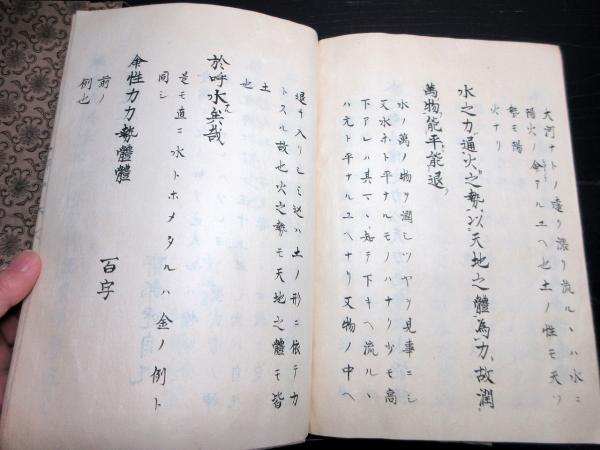 大河ナトノ走リ漲リ流ルヽハ水ニ
陽火ノ命アルユヘ也土ノ性モ天ノ
勢モ陽
火ナリ
水之力通火之勢以天地之體為力故潤
萬物能平能退
水ノ萬ノ物ヲ潤シツヤヲ見事ニシ
又水ホト平ナルモノハナリ少モ高
下アレハ其マヽ長テ下キヘ流ルヽ
ハ元ト平ナルユヘナリ又物ノ中ヘ
退キ入リシミ込ハ土ノ形ニ依テカ
トスル故也火之勢モ天地之體モ皆
土
也
於呼水矣哉
是モ直ニ水トホメタルハ金ノ例ト
同シ
命性力力勢體體
前ノ
例也
百字